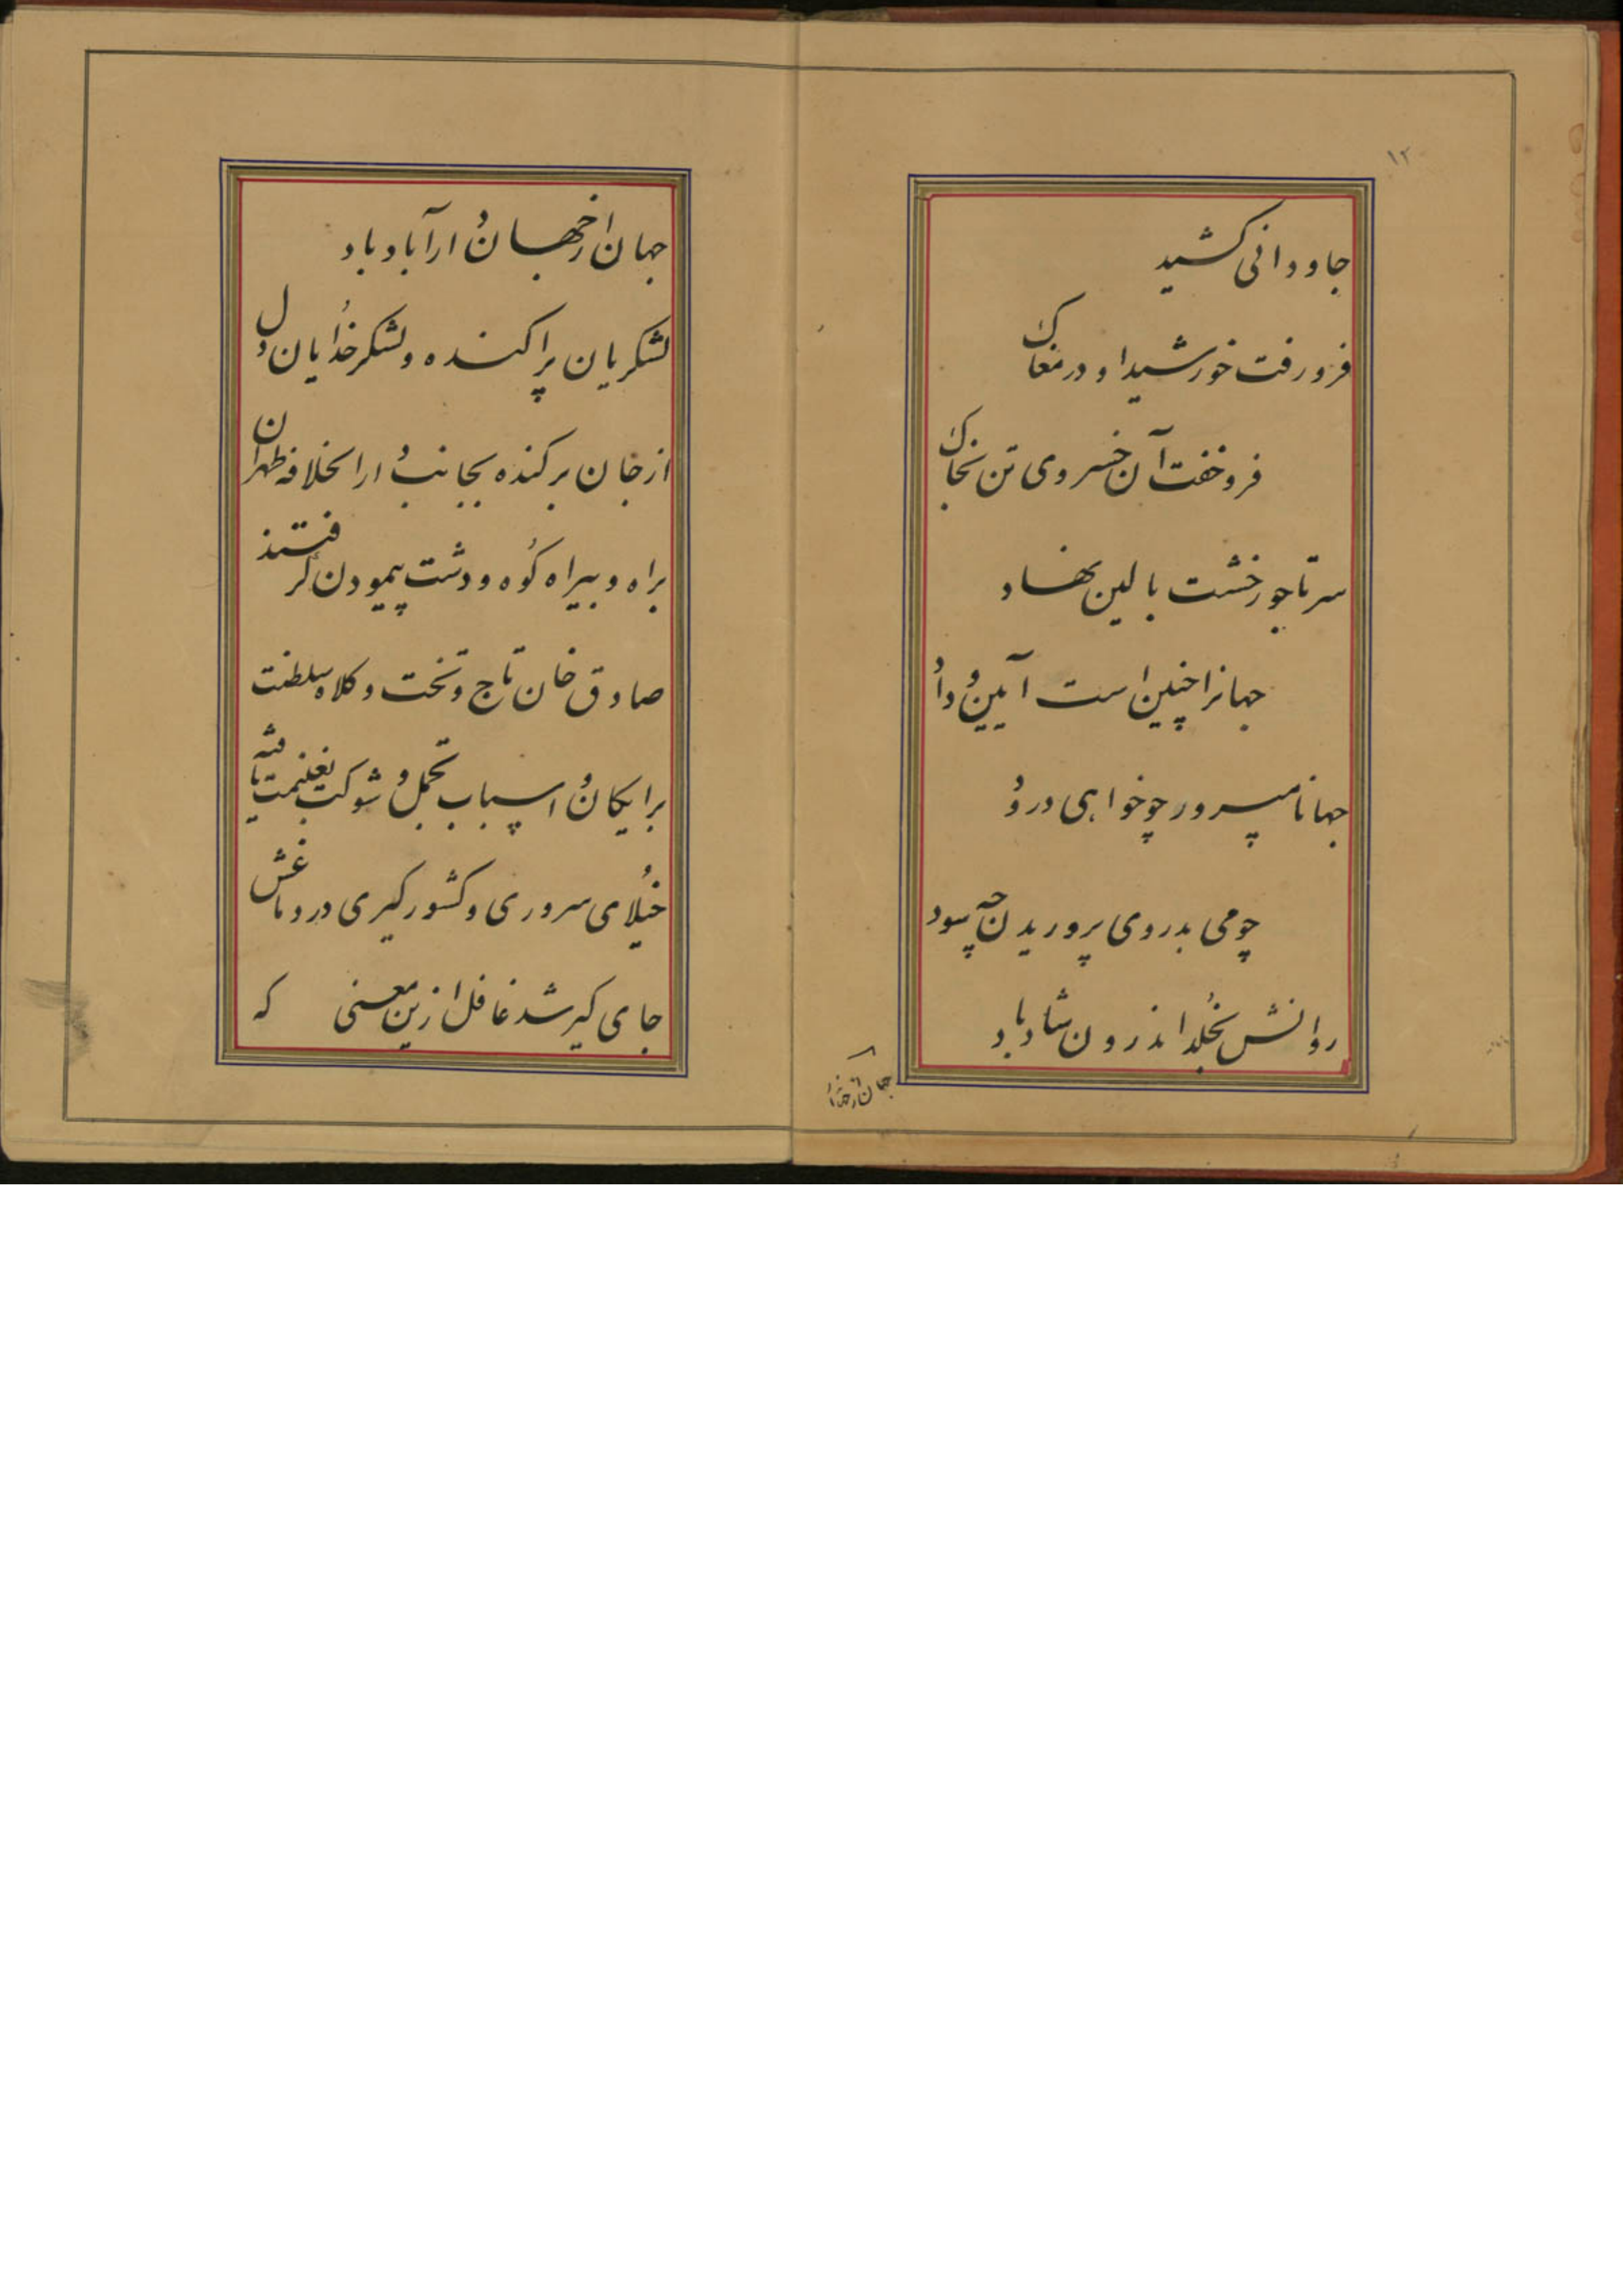 ۱۲
جاودانی کشید
فرو رفت خورشید او در مغاک
فرو خفت آن خسروی تن بخاک
سر تاجور خشت بالین نهاد
جهانرا چنین است آیین و داد
جهانا مپرور چو خواهی درود
چو می بدروی پروریدن چه سود
روانش بخلد اندرون شاد باد
جهان از
جهان از جهاندار آباد باد
لشکریان پراکنده و لشکر خدایان دل
از جان برکنده بجانب دارالخلافه طهران
براه و بیراه کوه و دشت پیمودن گرفتند
صادق خان تاج و تخت و کلاه سلطنت
برایکان و اسباب تجمل و شوکت بغنیمت یافته
خیلای سروری و کشورگیری در دماغش
جای گیر شد غافل ازین معنی که